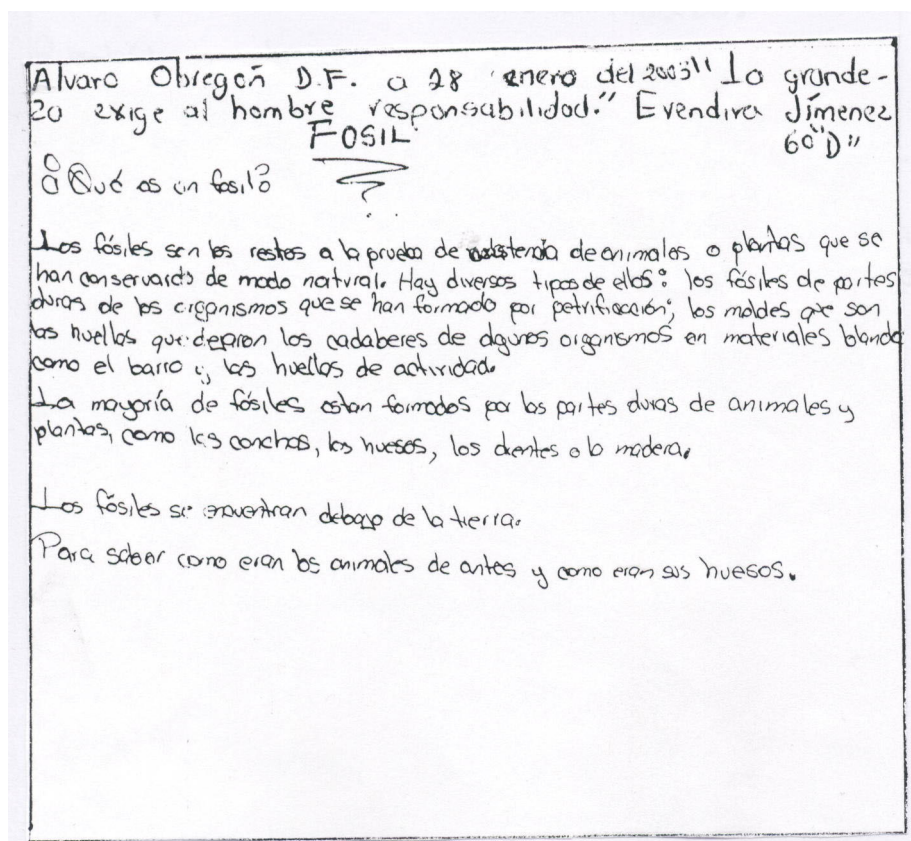 Alvaro Obregón D.F. a 28 enero del 2003 "La grande-
za exige al hombre responsabilidad." Evendira Jímenez
FOSIL 6º "D"
¿Qué es un fosil?
Los fósiles son los restos a la prueba de existencia de animales o plantas que se
han conservardo de modo natural. Hay diversos tipos de ellos: los fósiles de partes
duras de los organismos que se han formado por petrificación; los moldes que son
las huellas que dejaron los cadaberes de algunos organismos en materiales blandos
como el barro y, las huellas de actividad.
La mayoría de fósiles estan formados por las partes duras de animales y
plantas, como las conchas, los huesos, los dientes o la madera.
Los fósiles se encuentran debajo de la tierra.
Para saber como eran los animales de antes y como eran sus huesos.